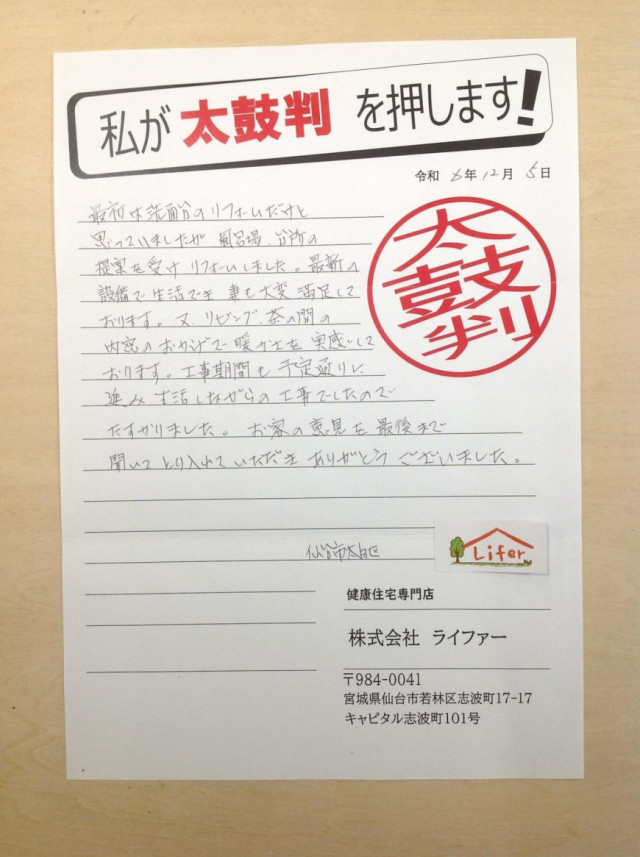 私が 太鼓判 を押します!
令和 6年 12月 5日
太鼓判
最初は洗面台のリフォームだけと
思っていましたが 風呂場、台所の
提案を受け リフォームしました。最新の
設備で生活でき 事も大変 満足して
おります。又、リビング、茶の間の
内窓のおかげで 暖かさを 実感して
おります。工事期間も 予定通りに
進み 生活しながらの工事でしたので
たすかりました。 お客の意見を 最後まで
聞いて とり入れて いただき ありがとう ございました。
仙台市太白区
Lifer
健康住宅専門店
株式会社 ライファー
〒984-0041
宮城県仙台市若林区志波町17-17
キャピタル志波町101号